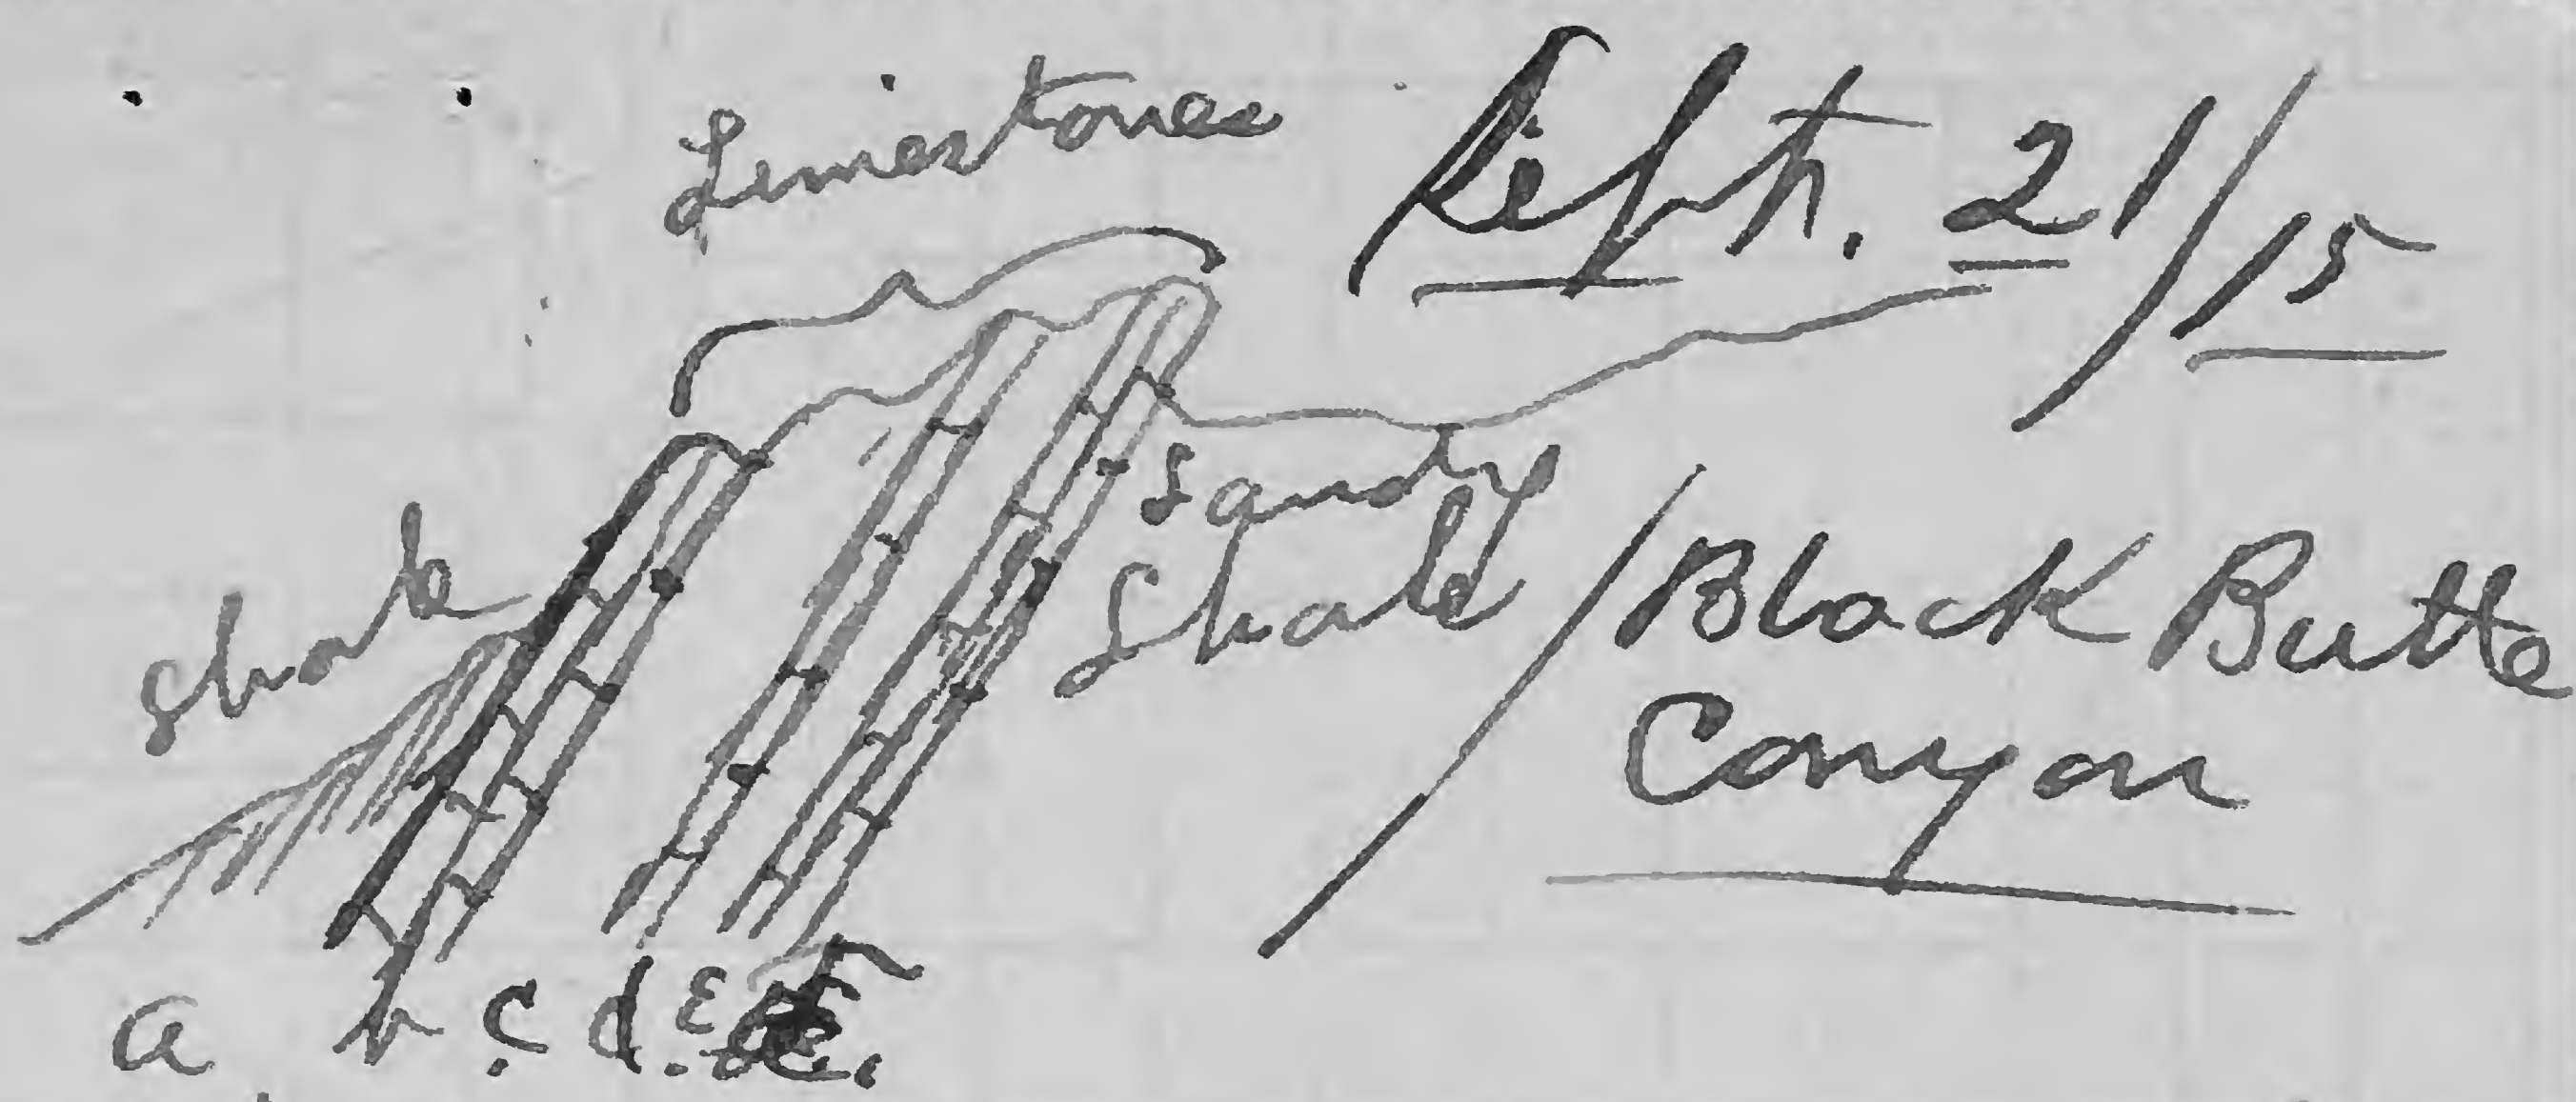 Limestones
Sept. 21/15
Shale
Sandy
Shale
Black Butte
Canyon
a b c d. E F.